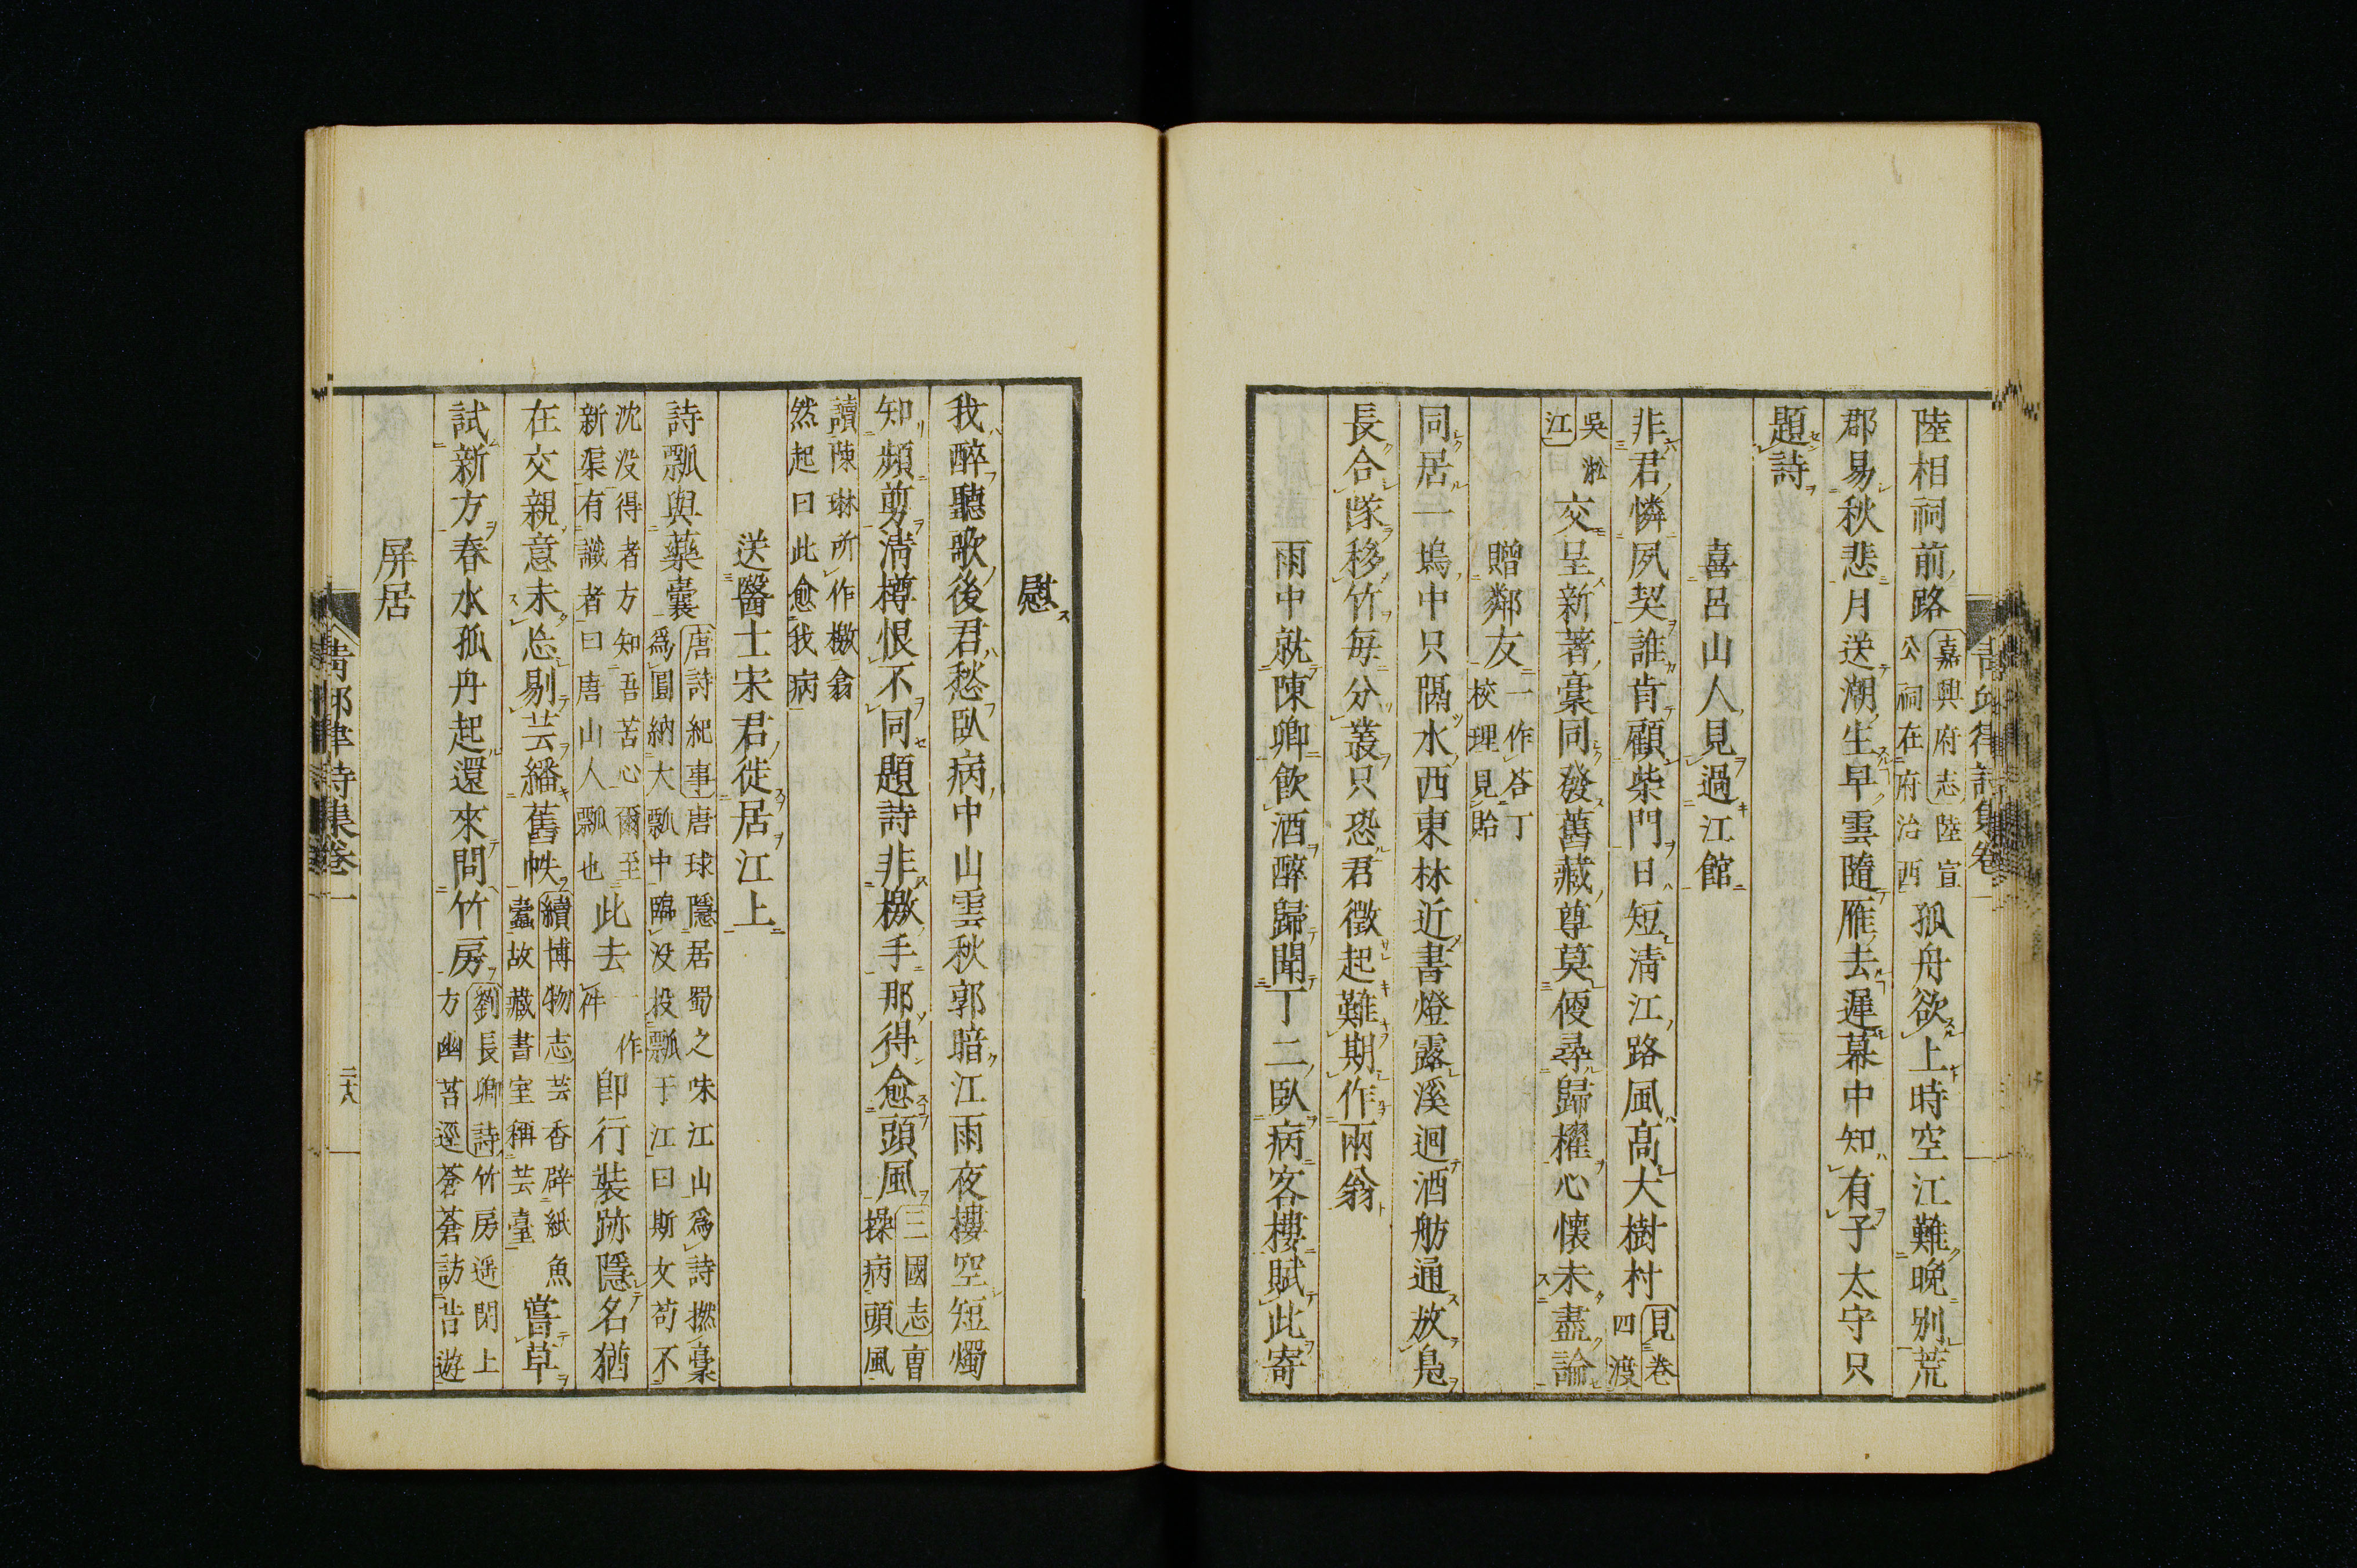 陸相祠前路嘉興府志陸宣公祠在府治西孤舟欲上時空江難晚別荒
郡易秋悲月送潮生早雲隨雁去遲幕中知有子太守只
題詩
喜呂山人見過江館
非君憐夙契誰肯顧柴門日短清江路風高大樹村見卷四渡
吳淞江交呈新著藁同發舊藏尊莫便尋歸櫂心懷未盡論
贈鄰友一作荅丁校理見貽
同居一塢中只隔水西東林近書燈露溪迴酒舫通放鳧
長合隊移竹毎分叢只恐君徵起難期作兩翁
雨中就陳卿飮酒醉歸聞丁二臥病客樓賦此寄
慰
我醉聽歌後君愁臥病中山雲秋郭暗江雨夜樓空短燭
知頻剪淸樽恨不同題詩非檄手那得愈頭風三國志曹操病頭風
讀陳琳所作檄翕然起曰此愈我病
送醫士宋君徙居江上
詩瓢與藥囊唐詩紀事唐球隱居蜀之味江山爲詩撚藁爲圓納大瓢中臨没投瓢于江曰斯文苟不
沈没得者方知吾苦心爾至新渠有識者曰唐山人瓢也此去一作件卽行裝跡隱名猶
在交親意未忘剔芸繙舊帙續博物志芸香辟紙魚蠹故藏書室稱芸臺嘗草
試新方春水孤舟起還來問竹房劉長卿詩竹房遥閉上方幽苔逕蒼蒼訪昔遊
屏居
青邱律詩集卷一
二十八